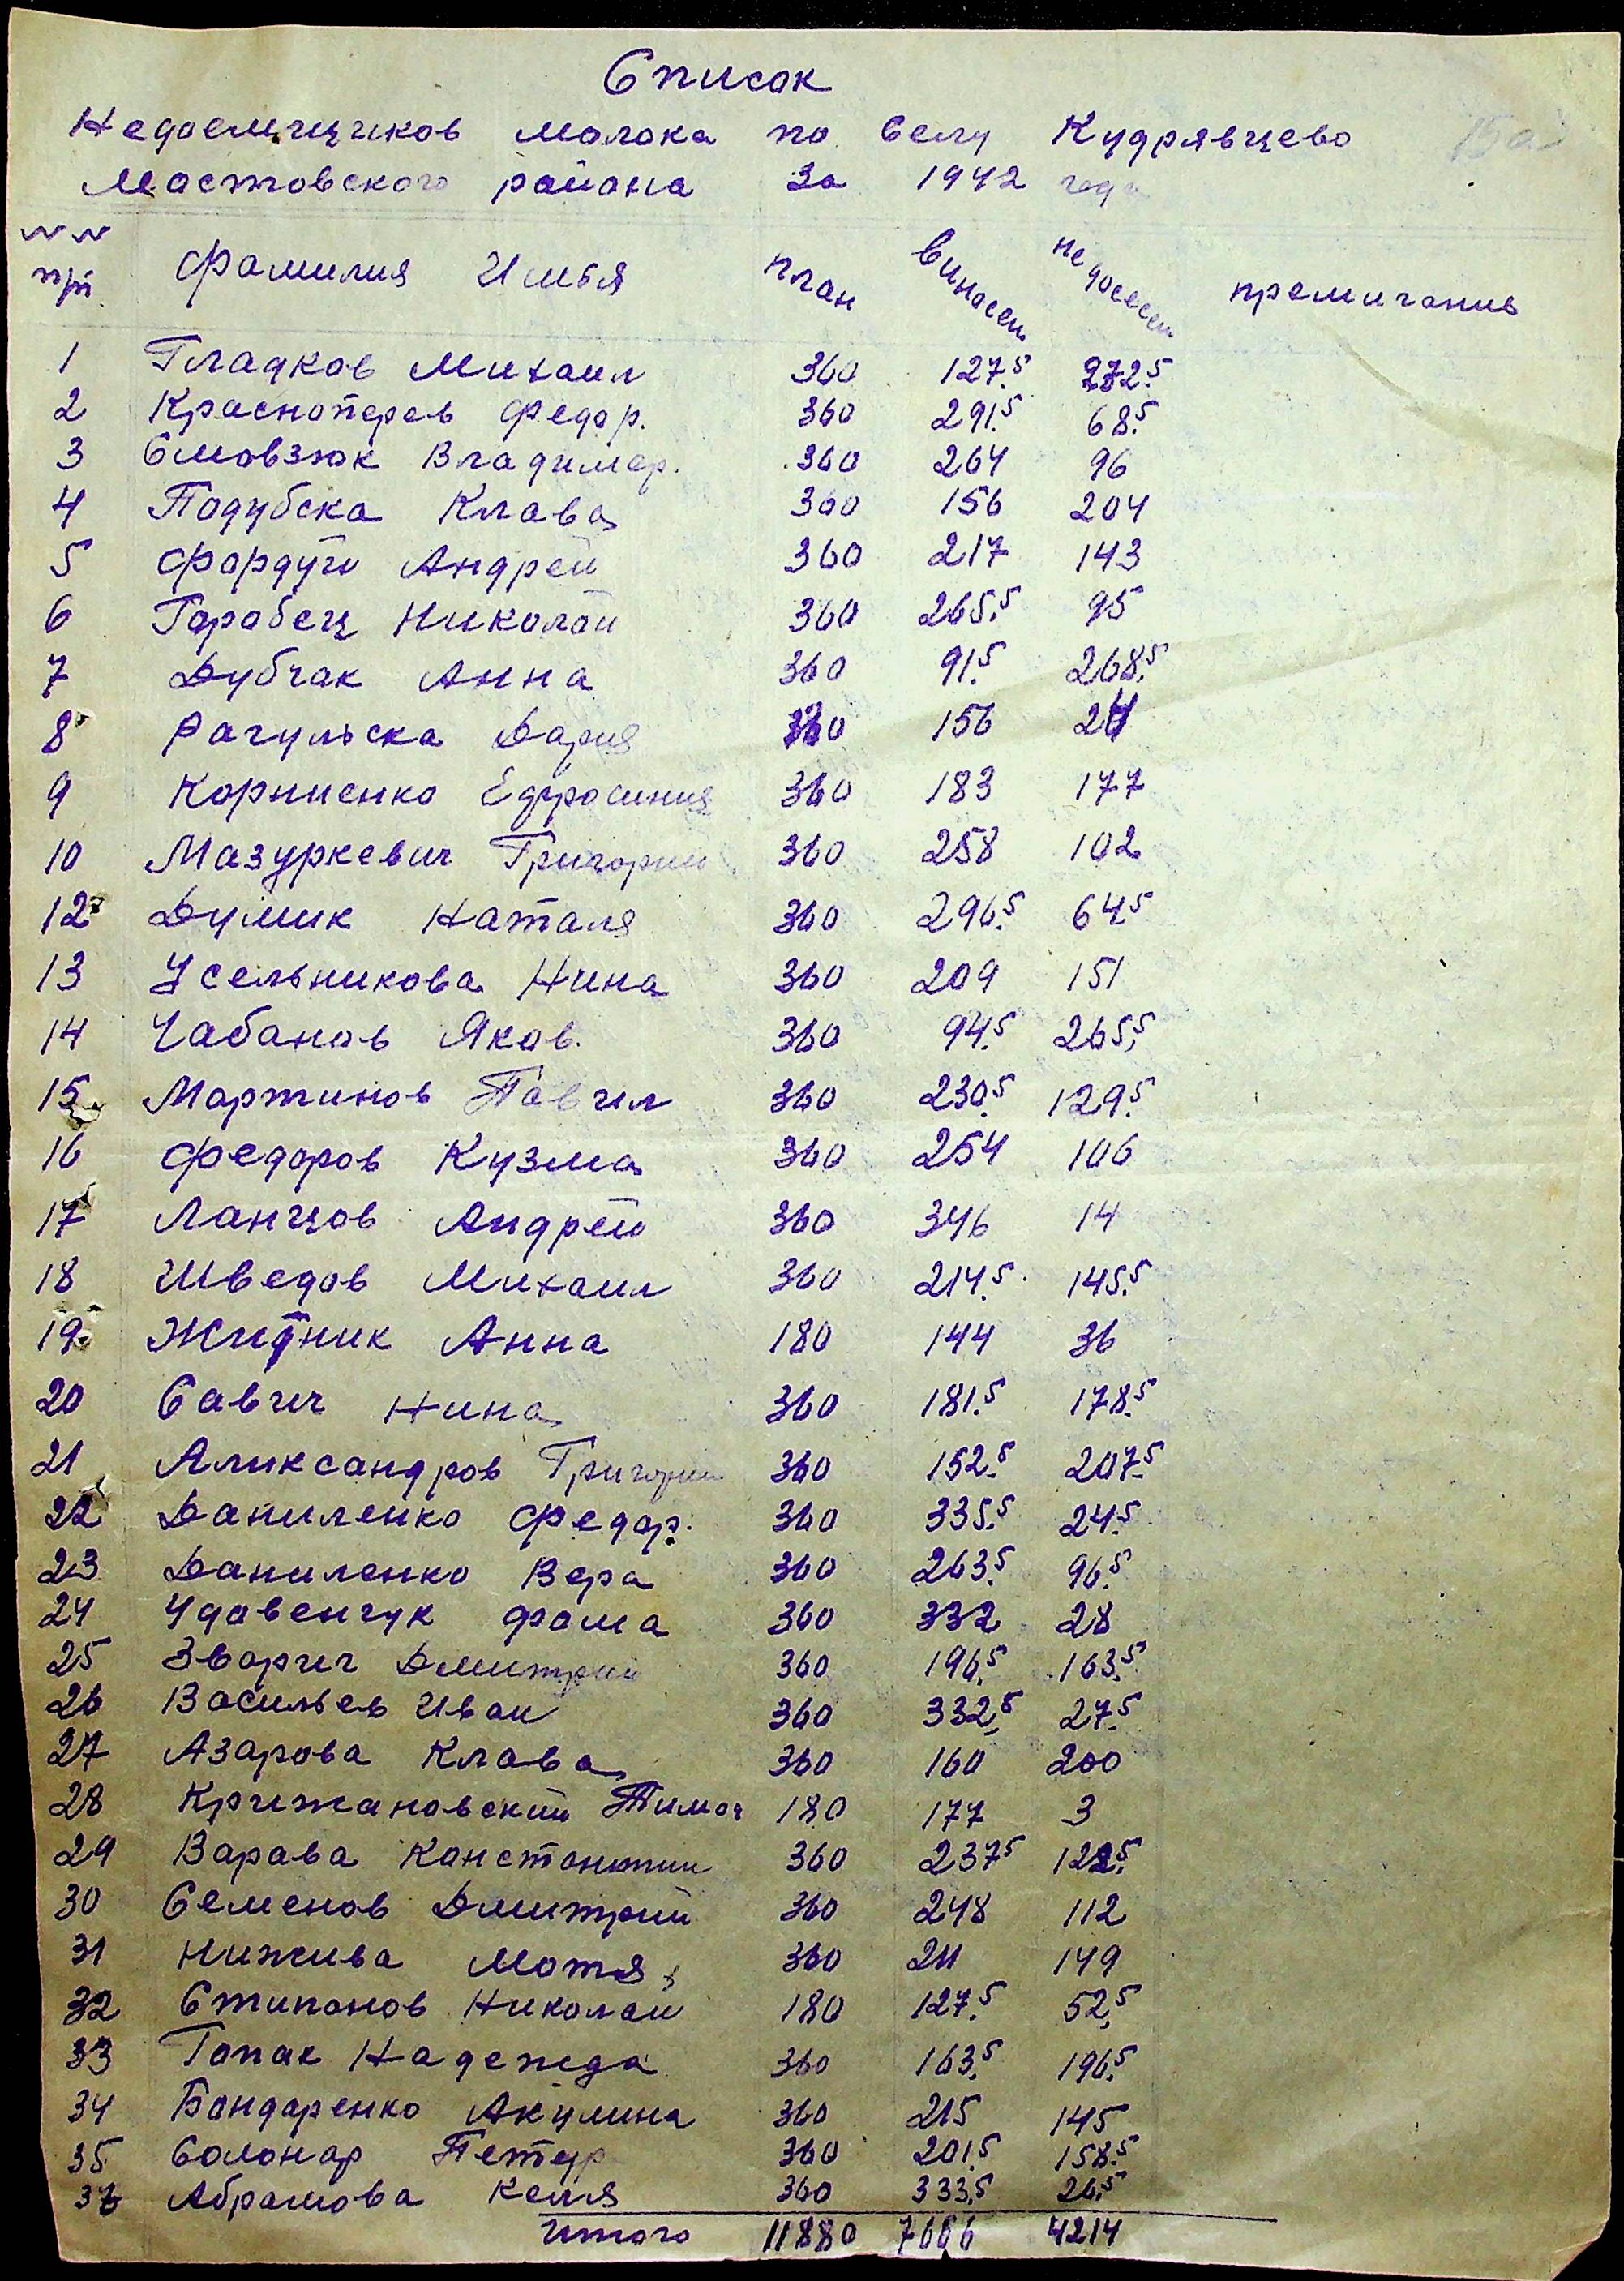 Список
Недоемщчиков молока по Селу Кудрявцево 15а
Мостовского района За 1942 года
№№ п/п Фамилия Имья план винасен недосесен премичания
1 Гладков Михаил 360 127.5 232.5
2 Красноперов Федор. 360 291.5 68.5
3 Смовзюк Владимер. 360 264 96
4 Подубска Клава 360 156 204
5 Фордуи Андрей 360 217 143
6 Горобец Николай 360 265.5 95
7 Дубчак Анна 360 91.5 268.5
8 Рагульска Дария 360 156 204
9 Корниенко Ефросиния 360 183 177
10 Мазуркевич Григорий 360 258 102
12 Думик Наталя 360 296.5 64.5
13 Усельникова Нина 360 209 151
14 Чабанов Яков. 360 94.5 265.5
15 Мартинов Павчил 360 230.5 129.5
16 Федоров Кузма 360 254 106
17 Ланцов Андрей 360 346 14
18 Шведов Михаил 360 214.5 145.5
19 Житник Анна 180 144 36
20 Савич Нина 360 181.5 178.5
21 Аликсандров Григорий 360 152.5 207.5
22 Даниленко Федор. 360 335.5 24.5
23 Даниленко Вера 360 263.5 96.5
24 Удовенчук Фома 360 332 28
25 Зварич Дмитрий 360 196.5 163.5
26 Васильев Иван 360 332.5 27.5
27 Азарова Клава 360 160 200
28 Крижановский Тимоч 180 177 3
29 Варава Констонтин 360 237.5 122.5
30 Семенов Дмитрий 360 248 112
31 Нижива Мотя 360 211 149
32 Стипонов Николай 180 127.5 52.5
33 Топак Надежда 360 163.5 196.5
34 Бондаренко Акулина 360 215 145
35 Солонар Петер 360 201.5 158.5
37 Абрамова Келя 360 333.5 26.5
Итого 11880 7666 4214